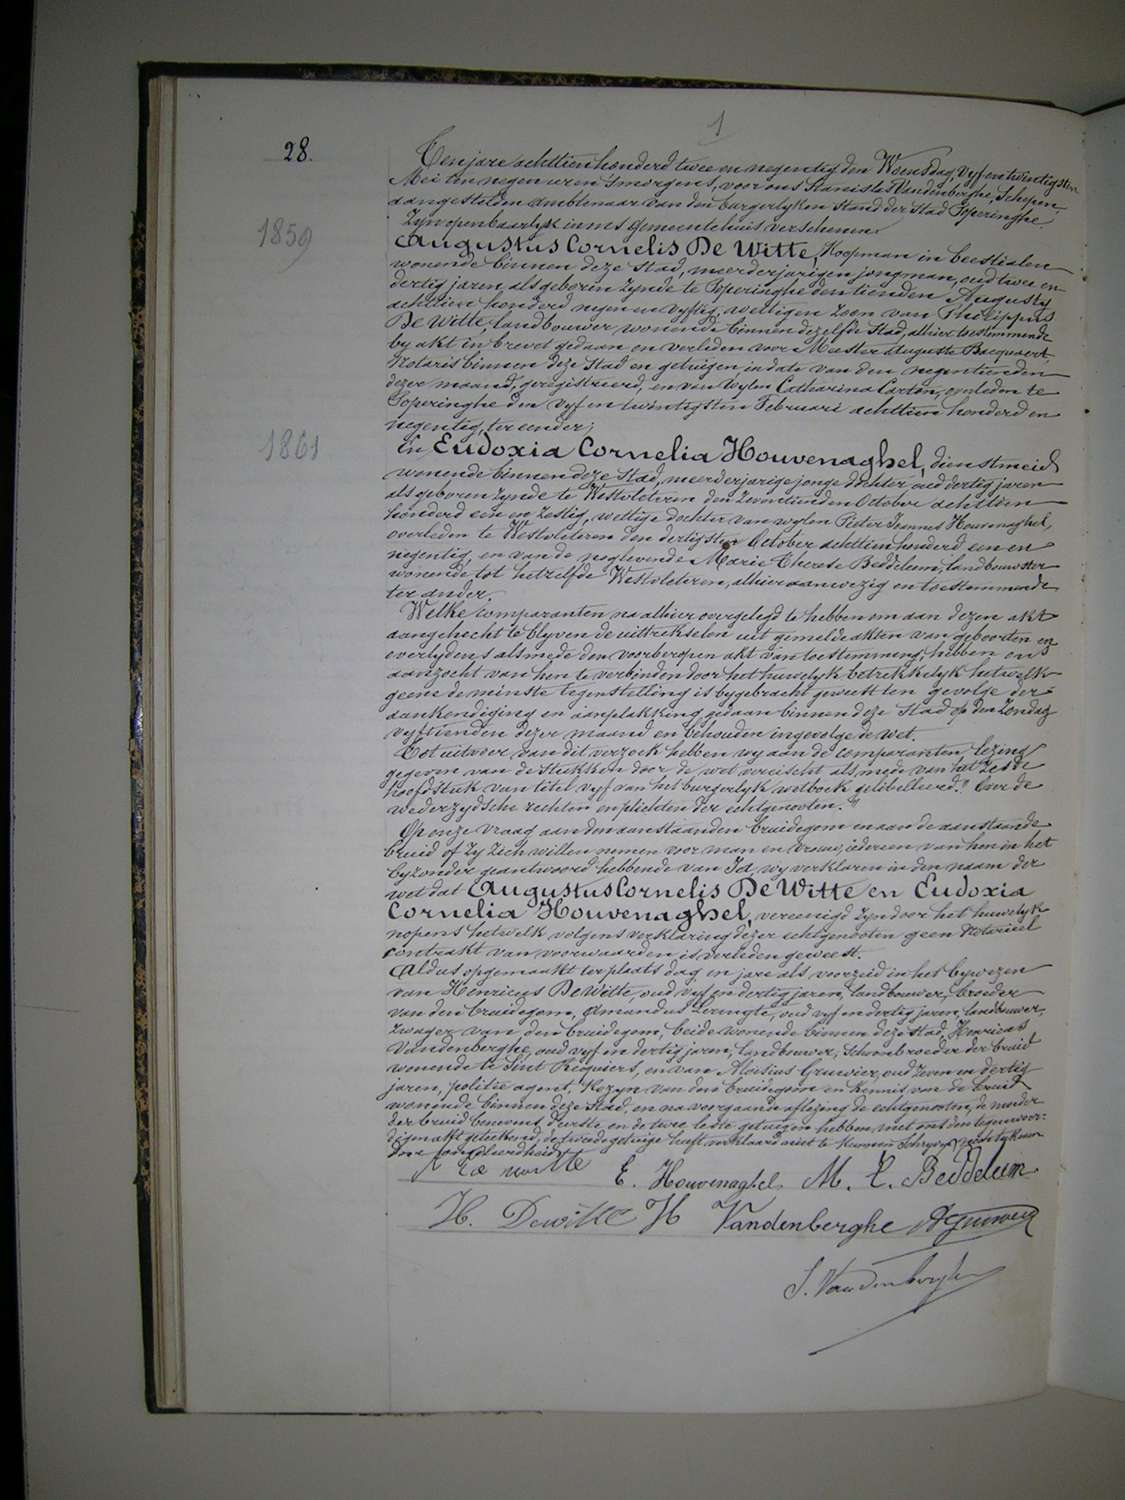 1
28.
Ten jare achttien honderd twee en negentig den Woensdag, vyf en twintigsten
Mei ten negen uren 's morgens, voor ons Stanislas Vandenberghe, Schepen,
aangestelden ambtenaar van den burgerlyken stand der Stad Poperinghe.
Zyn openbaarlyk in ons gemeentehuis verschenen
1859
Augustus Cornelis De Witte, Koopman in beestialen
wonende binnen deze stad, meerderjarigen jongman, oud twee en
dertig jaren, als geboren zynde te Poperinghe den tienden Augusty
achttien honderd negen en vyftig, wettigen zoon van Philippus
De Witte, landbouwer wonende binnen dezelfde stad, alhier toestemmende
by akt in brevet gedaan en verleden voor Meester Auguste Bacquaert,
Notaris binnen deze Stad en getuigen, in date van den negentienden
dezer maand, geregistreerd, en van wylen Catharina Carton, overleden te
Poperinghe den vyf en twintigsten Februari achttien honderd en
negentig, ter eender;
1861
En Eudoxia Cornelia Houvenaghel, dienstmeid
wonende binnen deze Stad, meerderjarige jonge dochter oud dertig jaren
als geboren zynde te Westvleteren den zeventienden October achttien
honderd een en zestig, wettige dochter van wylen Pieter Joannes Houvenaghel,
overleden te Westvleteren den dertigsten October achttien honderd een en
negentig, en van de noglevende Marie Therese Beddeleem, landbouwster
wonende tot hetzelfde Westvleteren, alhier aanwezig en toestemmende
ter ander.
Welke comparanten na alhier overgelegd te hebben om aan dezen akt
aangehecht te blyven de uittrekselen uit gemelde akten van geboorten en
overlydens alsmede den voorberoepen akt van toestemming, hebben ons
aanzocht van hen te verbinden door het huwelyk betrekkelyk hetwelk
geene de minste tegenstelling is bygebracht geweest ten gevolge der
aankondiging en aanplakking gedaan binnen deze Stad op den Zondag
vyftienden dezer maand en behouden ingevolge de wet.
Tot uitvoer van dit verzoek hebben wy aan de comparanten lezing
gegeven van de stukken door de wet vereischt alsmede van het zesde
hoofdstuk van titel vyf van het burgerlyk wetboek getitelleerd: "Over de
wederzydsche rechten en plichten der echtgenooten."
Op onze vraag aan den aanstaanden bruidegom en aan de aanstaande
bruid of zy zich willen nemen voor man en vrouw, iedereen van hen in het
byzonder geantwoord hebbende van Ja, wy verklaren in den naam der
wet dat Augustus Cornelis De Witte en Eudoxia
Cornelia Houvenaghel, vereenigd zyn door het huwelyk
nopens hetwelk volgens verklaring dezer echtgenooten geen Notarieel
contrakt van voorwaarden is verleden geweest.
Aldus opgemaakt ter plaats dag en jare als voorzeid in het bywezen
van Henricus De Witte, oud vyf en dertig jaren, landbouwer, broeder
van den bruidegom, Amandus oud vyf en dertig jaren, landbouwer,
zwager van den bruidegom, beide wonende binnen deze stad, Henricus
Vandenberghe, oud vyf en dertig jaren, landbouwer, Schoonbroeder der bruid
wonende te Sint Requiers, en van Aloisius Gruwier, oud zeven en dertig
jaren, politie agent, Kozyn van den bruidegom en Kennis van de bruid
wonende binnen deze Stad, en na voorgaande aflezing de echtgenooten, de moeder
der bruid benevens d'eerste en de twee leste getuigen hebben met ons den tegenwoor-
digen akt geteekend, de tweede getuige heeft verklaard niet te kunnen schryven
door ongeleerdheid
A De witte E. Houvenaghel M. T. Beddeleem
H. Dewitte H Vandenberghe A Gruwier
S. Vandenberghe